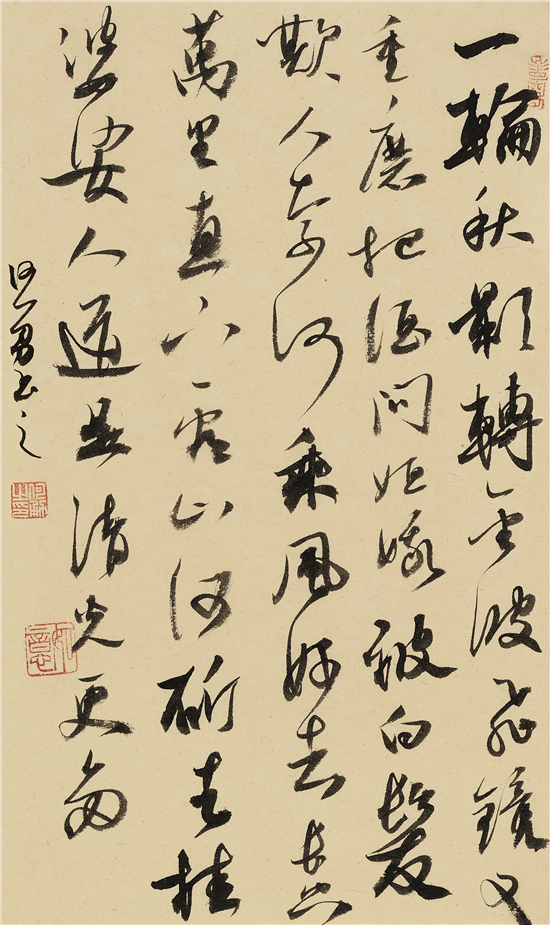 一輪秋影轉金波飛鏡又
重磨把酒問姮娥被白髮
欺人奈何乘風好去長空
萬里直下看山河斫去桂
婆娑人道是清光更多
何勇书之